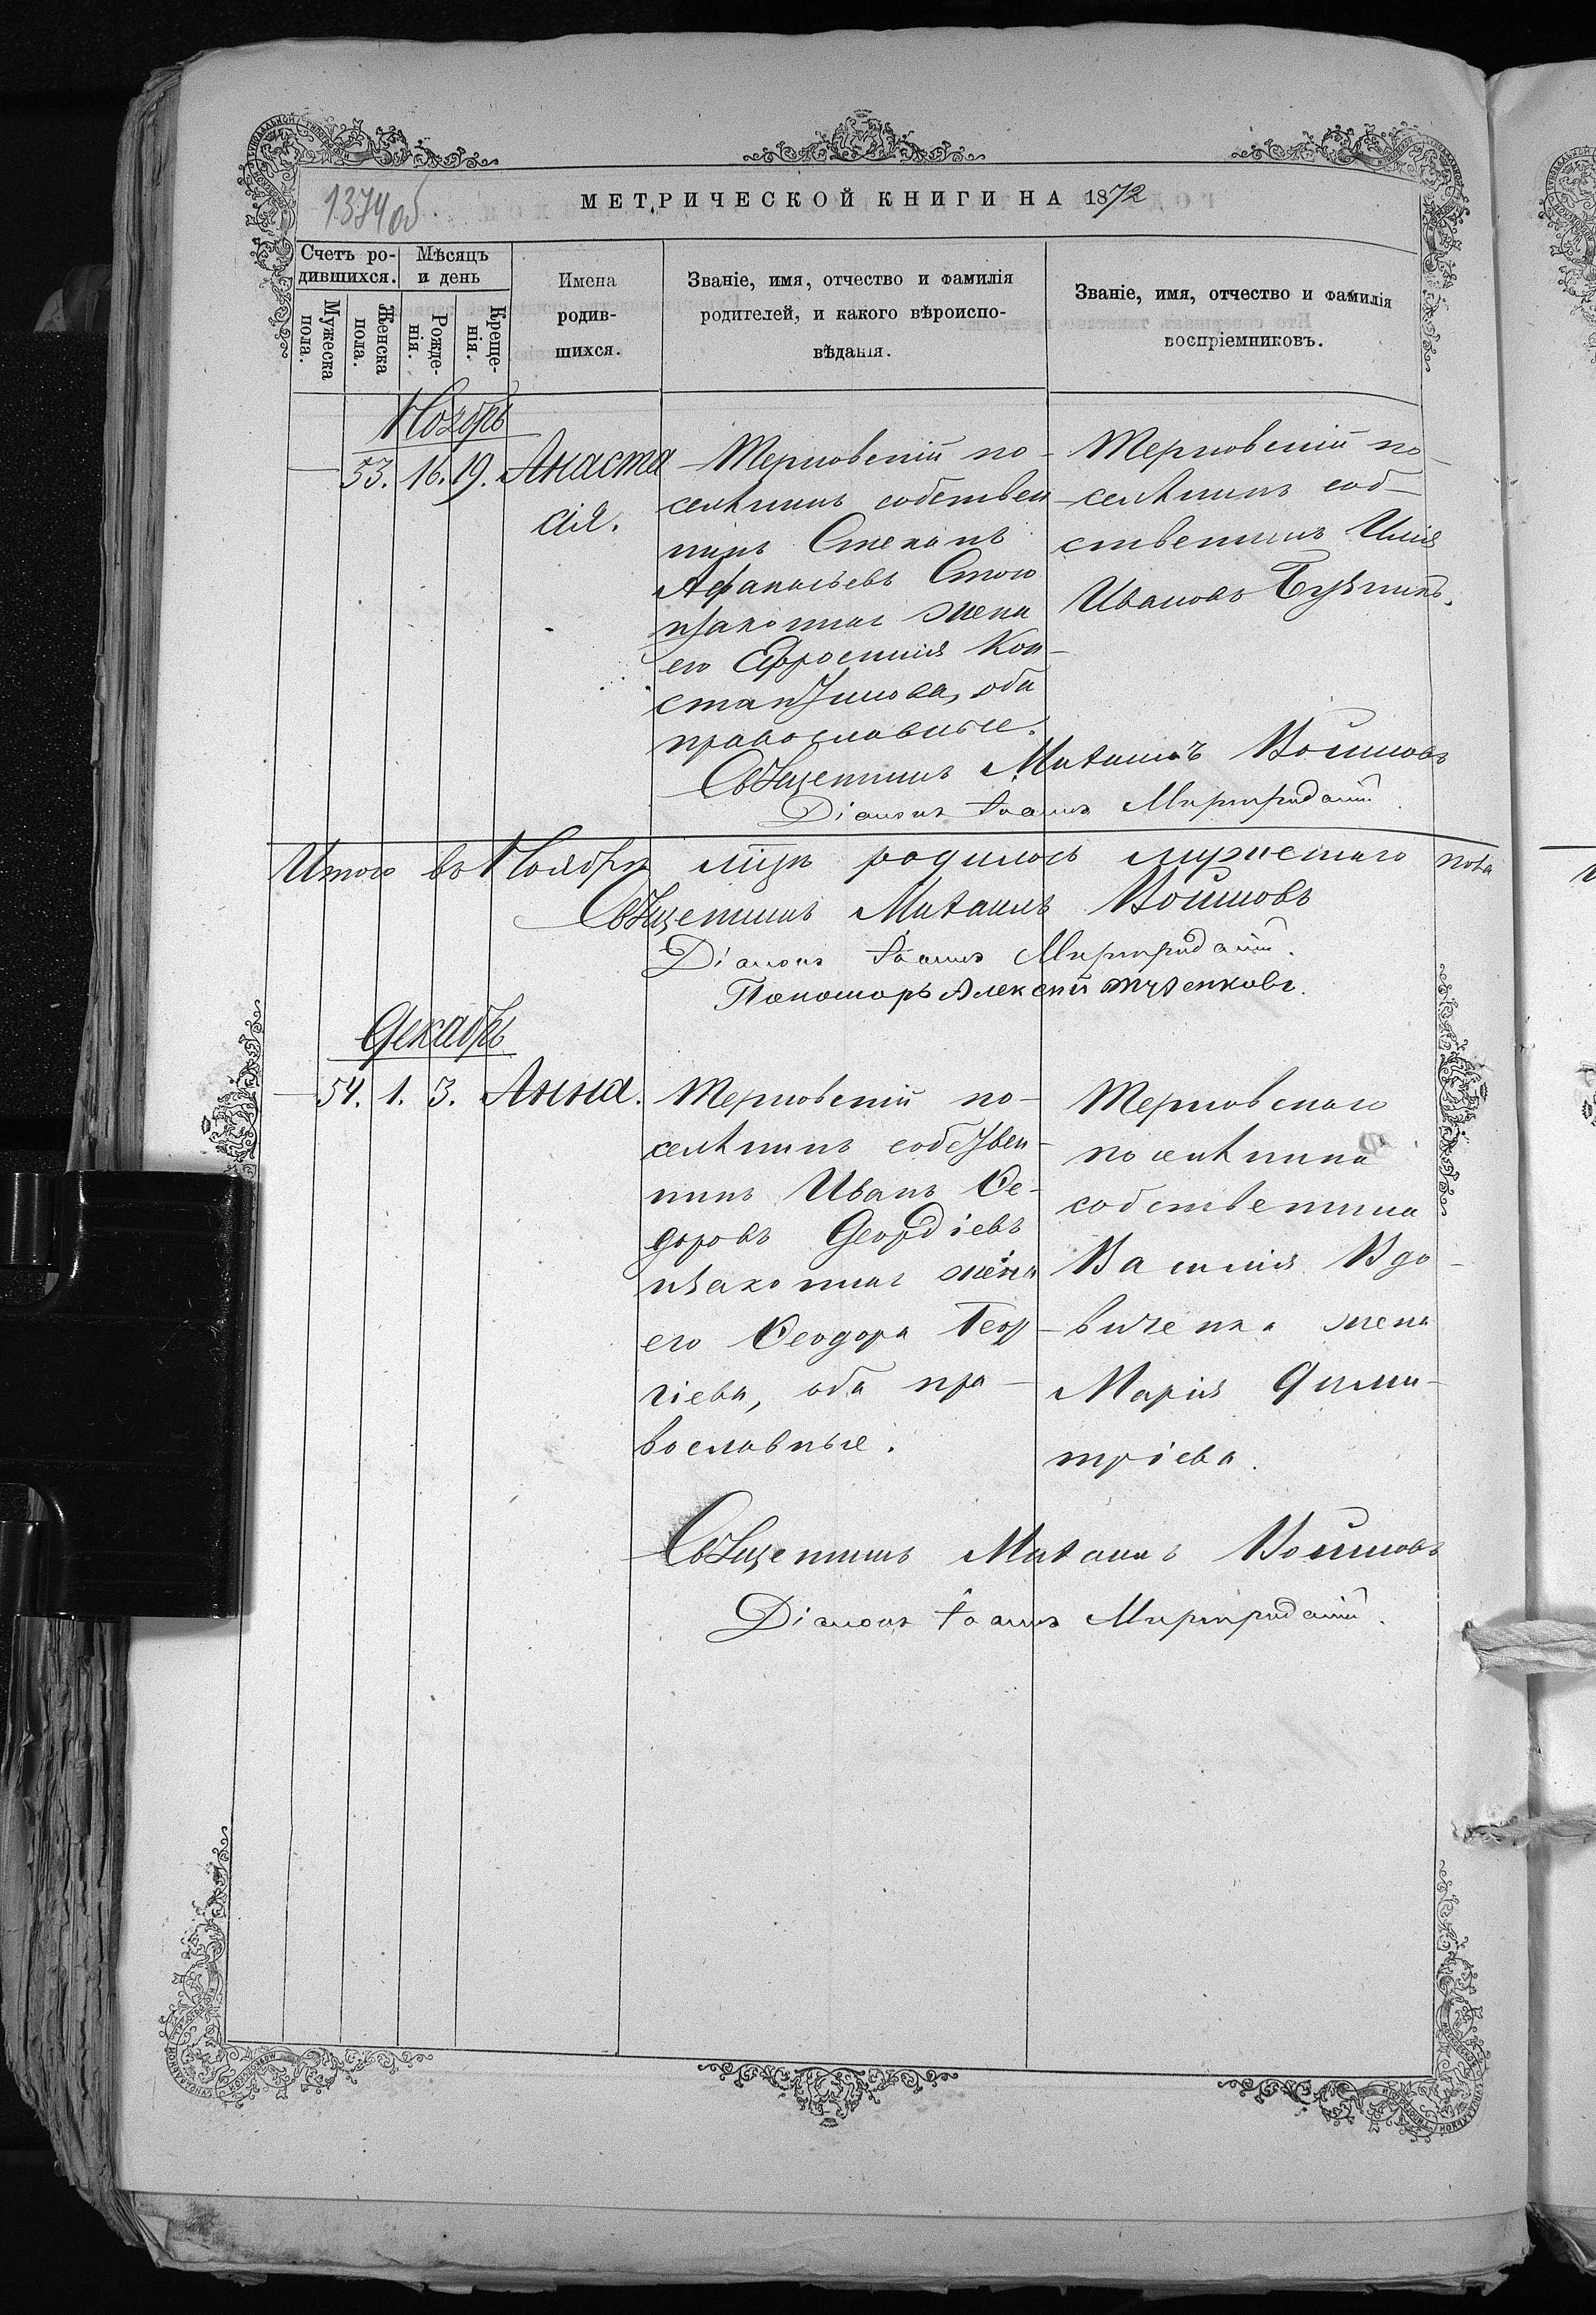 1374 об.
МЕТРИЧЕСКОЙ КНИГИ НА 1872
Счетъ ро-
дившихся.
Мѣсяцъ
и день
Мужеска
пола.
Женска
пола.
Рожде-
нія.
Креще-
нія.
Имена
родив-
шихся.
Званіе, имя, отчество и фамилія
родителей, и какого вѣроиспо-
вѣданія.
Званіе, имя, отчество и фамилія
воспріемниковъ.
Ноябрь
53. 16. 19. Анаста
сія.
Терновскій по-
селянинъ собствен
никъ Стефанъ
Афанасьевъ
и законная жена
его Ефросинія Кон-
стантинова, оба
православные.
Терновскій по-
селянинъ соб-
ственникъ Илія
Ивановъ
Священникъ Михаилъ Войновъ
Діаконъ Іоаннъ
Итого въ Ноябрѣ мцѣ родилось мужескаго пола
Священникъ Михаилъ Войновъ
Діаконъ Іоаннъ
Пономарь Алексѣй
Декабрь
54. 1. 3. Анна.
Терновскій по-
селянинъ собствен-
никъ Иванъ Ѳе-
доровъ Георгіевъ
и законная жена
его Ѳеодора Геор
гіева, оба пра-
вославные.
Терновскаго
поселянина
собственника
Василія Вдо-
виченка жена
Марія Дими-
тріева.
Священникъ Михаилъ Войновъ
Діаконъ Іоаннъ